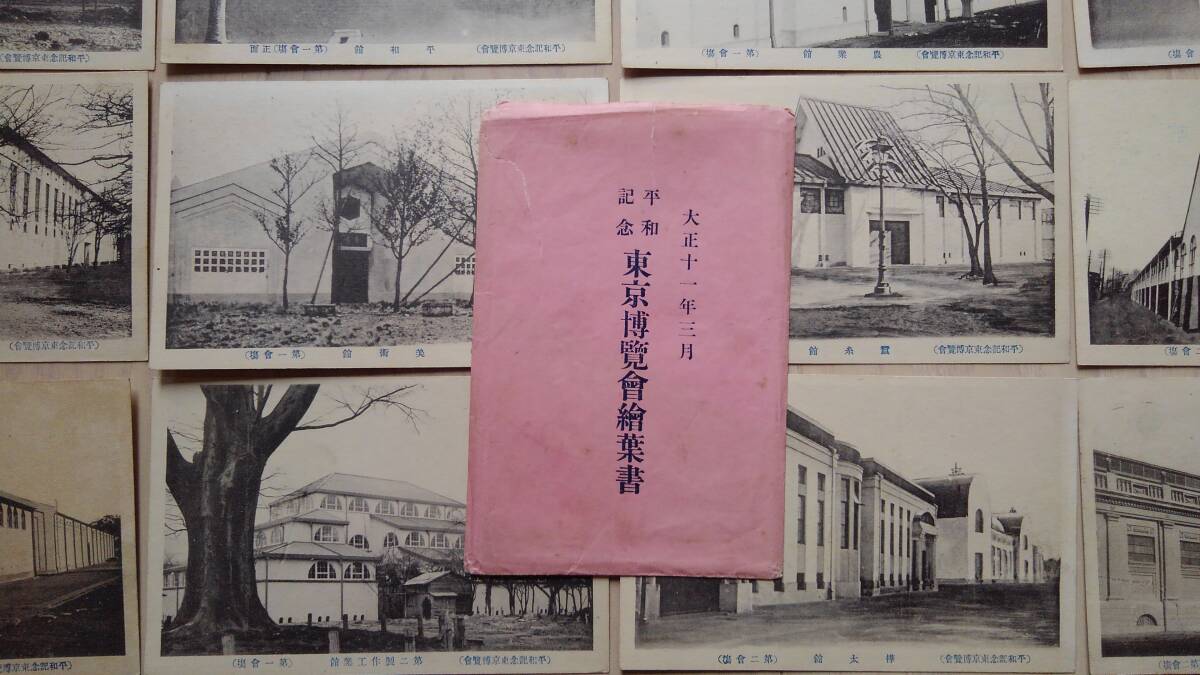 大正十一年三月
平和記念
東京博覽會繪葉書
(平和記念東京博覽會)
(平和記念東京博覽會) 平和館 (第一會場) 正面
(平和記念東京博覽會) 農業館 (第一會場)
(平和記念東京博覽會)
美術館 (第一會場)
(平和記念東京博覽會) 蠶糸館
(平和記念東京博覽會)
(平和記念東京博覽會) 第二製作工業館 (第一會場)
(平和記念東京博覽會) 樺太館 (第二會場)